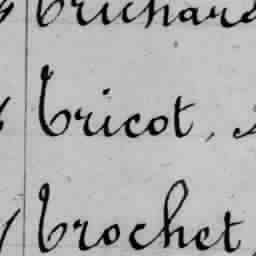 Brichard
Bricot,
Brochet,